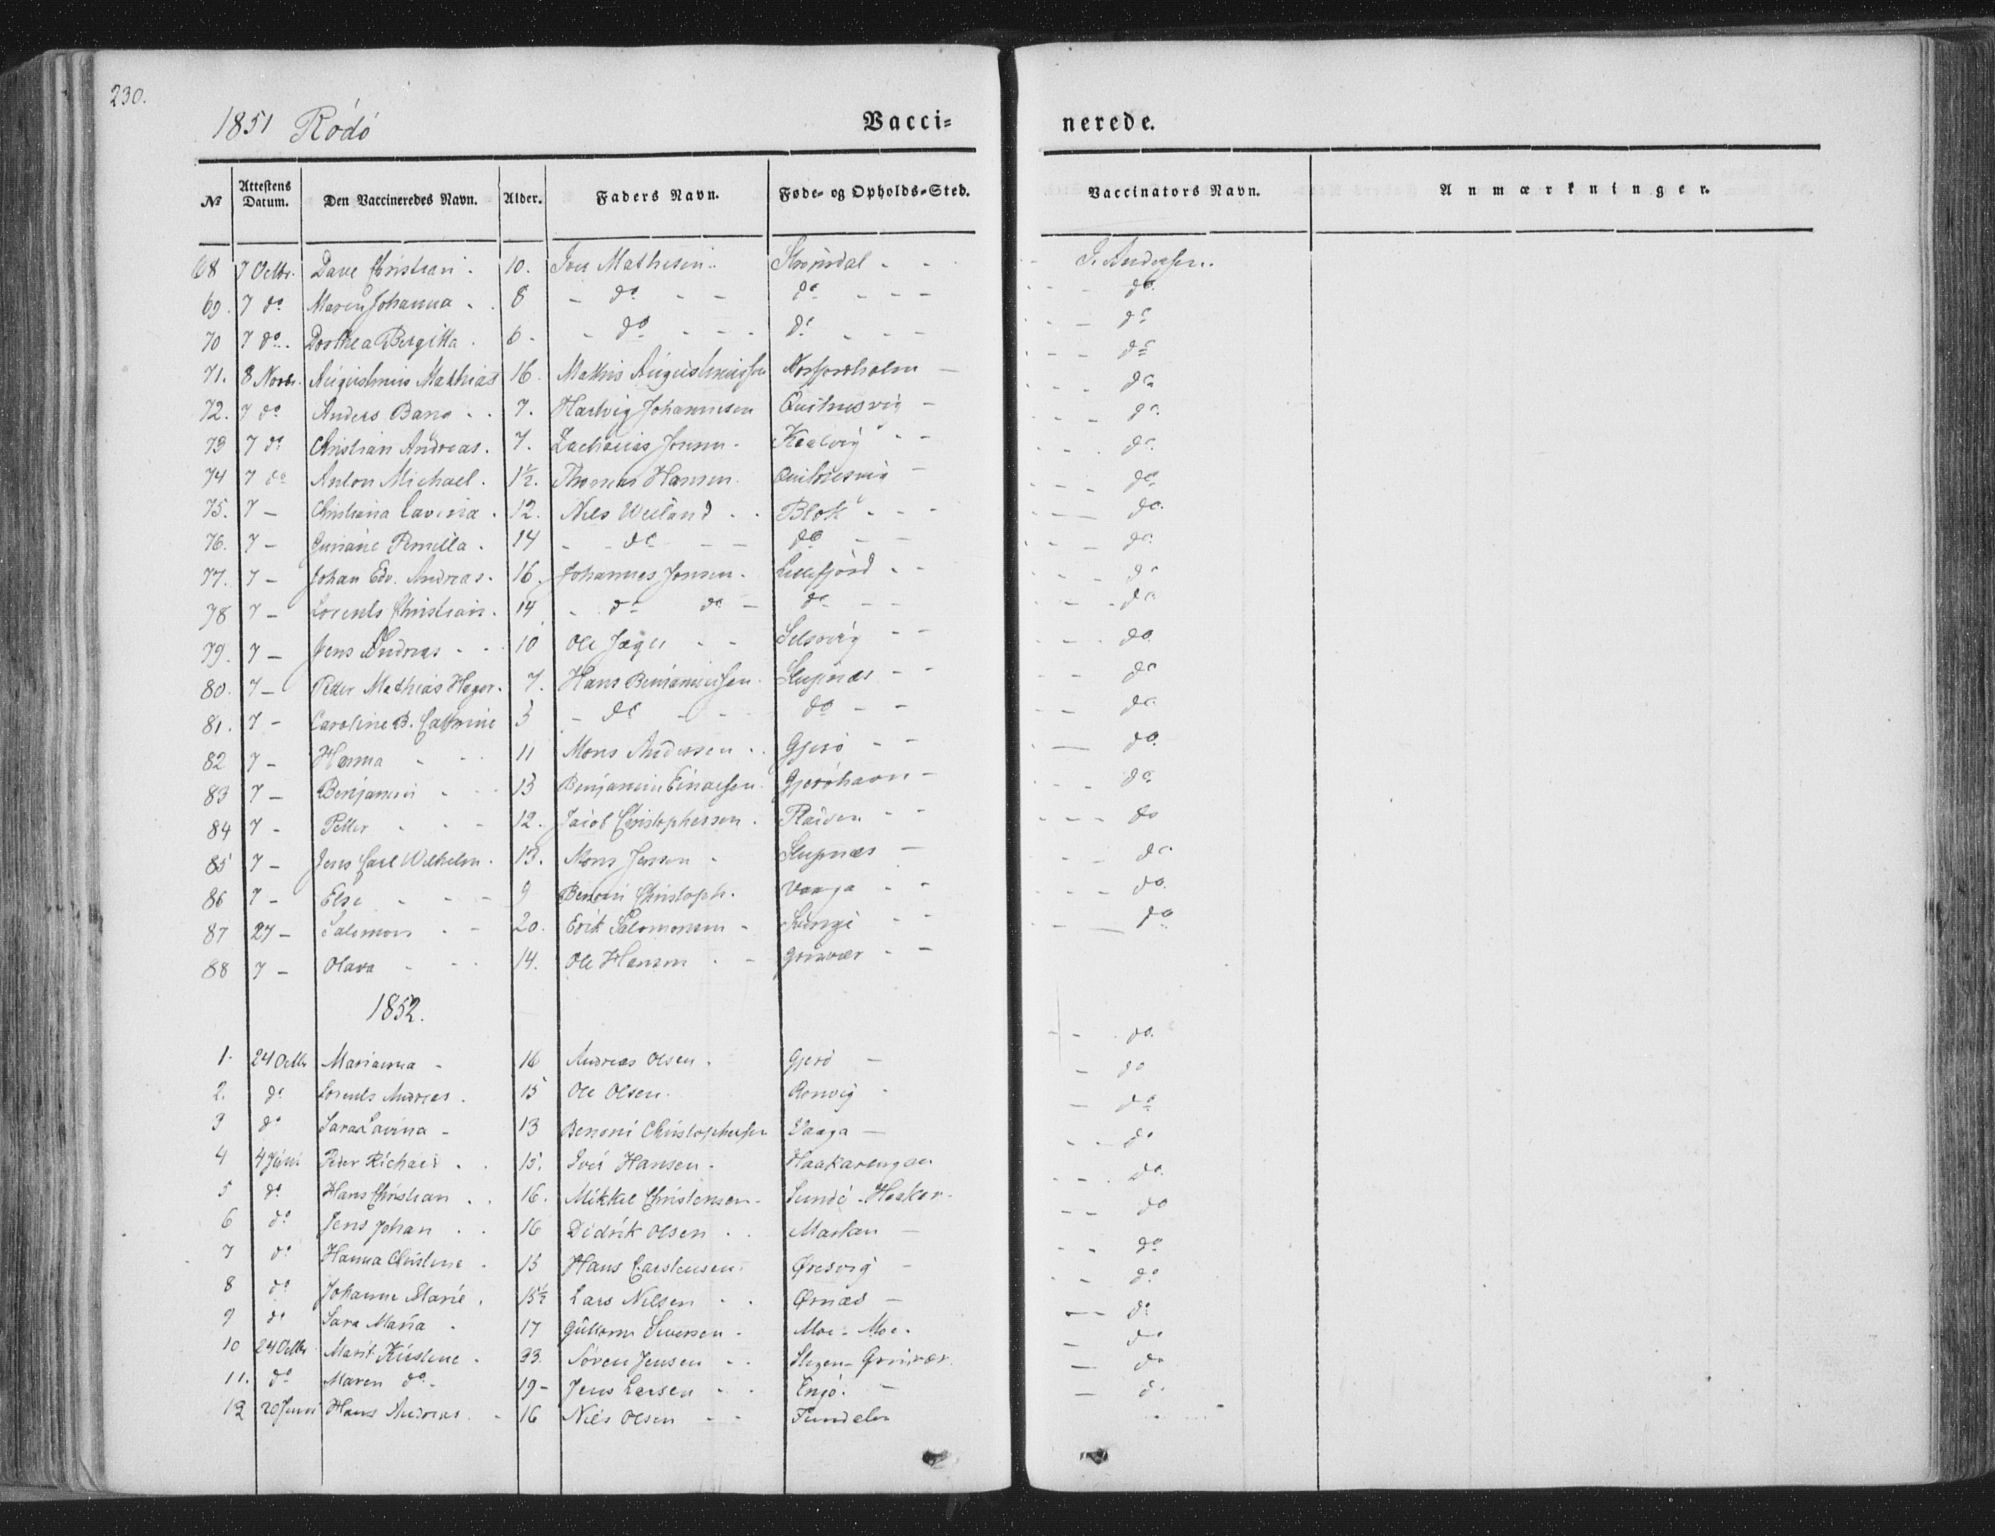 230.
1851 Rödö
Vacci= nerede.
№ Attestens Datum. Den Vaccineredes Navn. Alder. Faders Navn. Føde- og Opholds-Sted. Vaccinators Navn. Anmærkninger.
68 7 Octbr. Christian 10. Iver Mathesen Strømdal J. Andersen.
69. 7 do Maren Johanna 8 do do do.
70 7 do Dorthea Bergitta 6 do do do
71. 8 Novbr. Augustinus Mathias 16. Mathis Augustinussen do
72. 7 do Anders Bang 7. Hartvig Johannesen Qvitnesvig do
73 7 do Christian Andreas. 7. Zacharias Jonsen do.
74 7 do Anton Michael. 1½. Thomas Hansen do.
75. 7 – Christiana Lavina 12. Nils Weiland Blok do
76. 7 – Pernilla 14 do do do.
77. 7 – Johan Edv. Andreas. 16. Johannes Jonsen Lillefjord do.
78 7 – Lorents Christian. 14 do do do do
79. 7 – Jens Andreas 10 Ole Jæger Selsvig do
80. 7 – Peder Mathias Hager. 7. Hans Benjaminsen Stupnæs do.
81. 7 – Caroline B. Cathrine 3 do do do
82 7 – Hanna 11 Mons Andersen Gjerö do.
83 7 – Benjamin 13 Benjamin Einarsen Gjeröhavn do.
84 7 – Petter 12. Jacob Christophersen do
85 7 – Jens Carl Wilhelm. 13. Mons Jensen Stupnæs do
86 7 – Else 9 Benoni Christoph. Vaaga do.
87 27 – Salomon 20. Erik Salomonsen do.
88 7 – Olava 14. Ole Hansen Grinvær do
1852.
1. 24 Octbr Marianna 16 Andreas Olsen Gjerö do.
2. do Lorents Andreas. 15 Ole Olsen. Ronvig do
3 do Sara Lavina 13 Benoni Christophersen Vaaga do
4 4 Juni Peder Richard 15. Iver Hansen do
5 do Hans Christian 16. Mikkel Christensen do.
6 do Jens Johan 16 Didrik Olsen do
7 do Hanna Christine 15 Hans Carstensen Øresvig do
8 do Johanne Marie 15½ Lars Nilsen Ørnæs do
9 do Sara Maria 17 Guttorm Siversen Moe – Moe. do
10 24 Octbr Marit Kirstine 33. Sören Jensen do
11. do Maren do 19 – Jens Larsen Engö. do
12 20 Juni Hans Andreas 16 Nils Olsen do